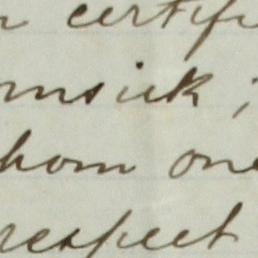 n certifi
msick ;
hom one
respect